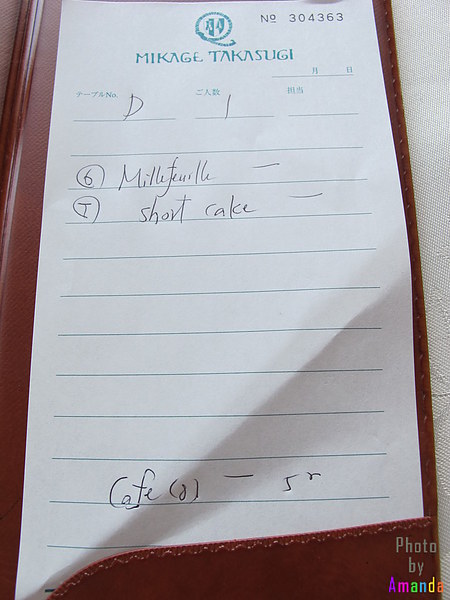 № 304363
MIKAGE TAKASUGI
月 日
テーブルNo. D ご人数 1 担当
⑥ Millefeuille —
short cake —
Cafe —
Photo
by
Amanda